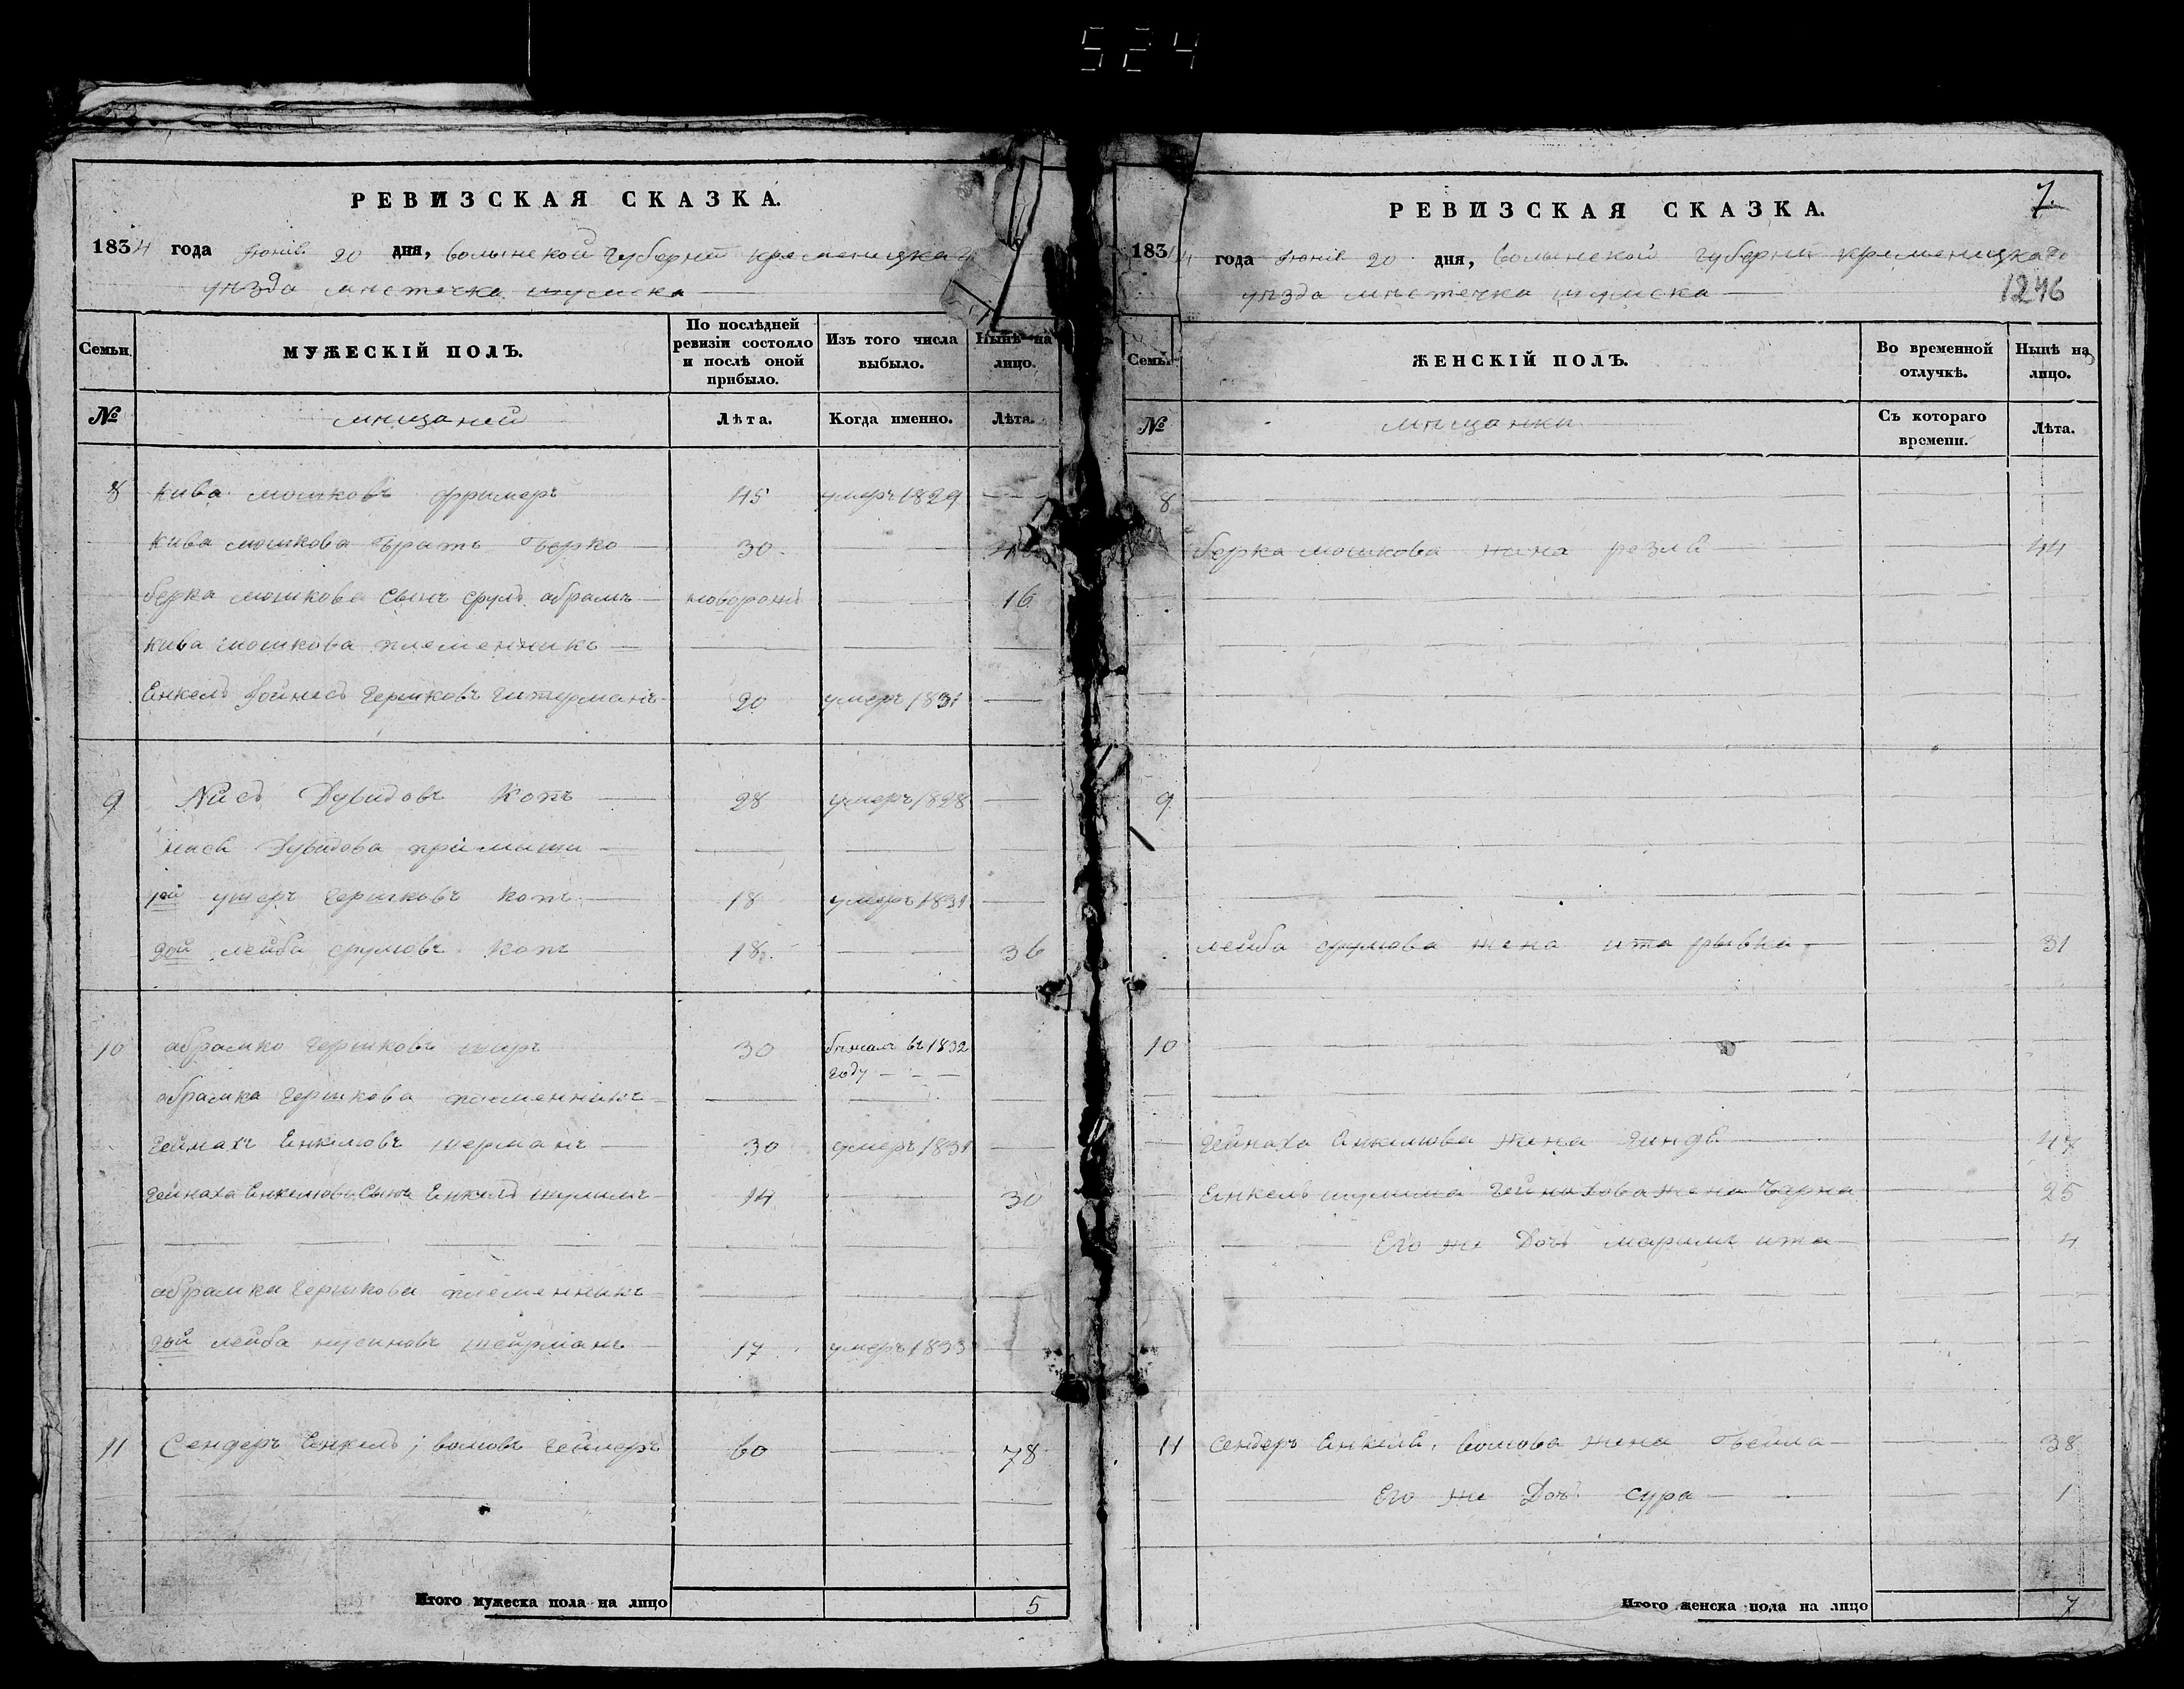 524
РЕВИЗСКАЯ СКАЗКА.
1834 года Іюня 20 дня, волынской губерніи кременецкаго
уѣзда мѣстечка шумска
Семьи МУЖЕСКІЙ ПОЛЪ. По послѣдней ревизіи состояло и послѣ оной прибыло. Изъ того числа выбыло. Нынѣ на лицо.
№ мѣщаней Лѣта. Когда именно. Лѣта.
8 Кива мошковъ фримеръ 45 умеръ 1829
Кива мошкова братъ берко 30
берка мошкова сынъ срулъ абрамъ новорожд 16
кива мошкова племенникъ
Енкель гершковъ 20 умеръ 1831
9 Дувидовъ Котъ 28 умеръ 1828
Дувидова
1ой ушеръ гершковъ котъ 18 умеръ 1831
2ой лейба срулювъ котъ 18 36
10 абрамко гершковъ 30 бѣжалъ въ 1832
году
абрамка гершкова племенникъ
гейнахъ Енкелювъ шерманъ 30 умеръ 1831
гейнаха Енкелюва сынъ Енкель шулимъ 14 30
абрамка гершкова племенникъ
2ой лейба 17 умеръ 1833
11 Сендеръ Енкель волювъ 60 78
Итого мужеска пола на лицо 5
7.
РЕВИЗСКАЯ СКАЗКА.
1834 года Іюня 20 дня, волынской губерніи кременецкаго
уѣзда мѣстечка шумска 1246
Семьи ЖЕНСКІЙ ПОЛЪ. Во временной отлучкѣ. Нынѣ на лицо.
№ мѣщанки Съ котораго времени. Лѣта.
8
берка мошкова жена резля 44
9
лейба срулюва жена ита рывка 31
10
гейнаха Енкелюва жена гинда 47
Енкель шулима гейнахова жена Чарна 25
Его же Дочь маримъ ита 4
11 Сендеръ Енкеля волюва жена бейла 38
Его же Дочь сура 1
Итого женска пола на лицо 7